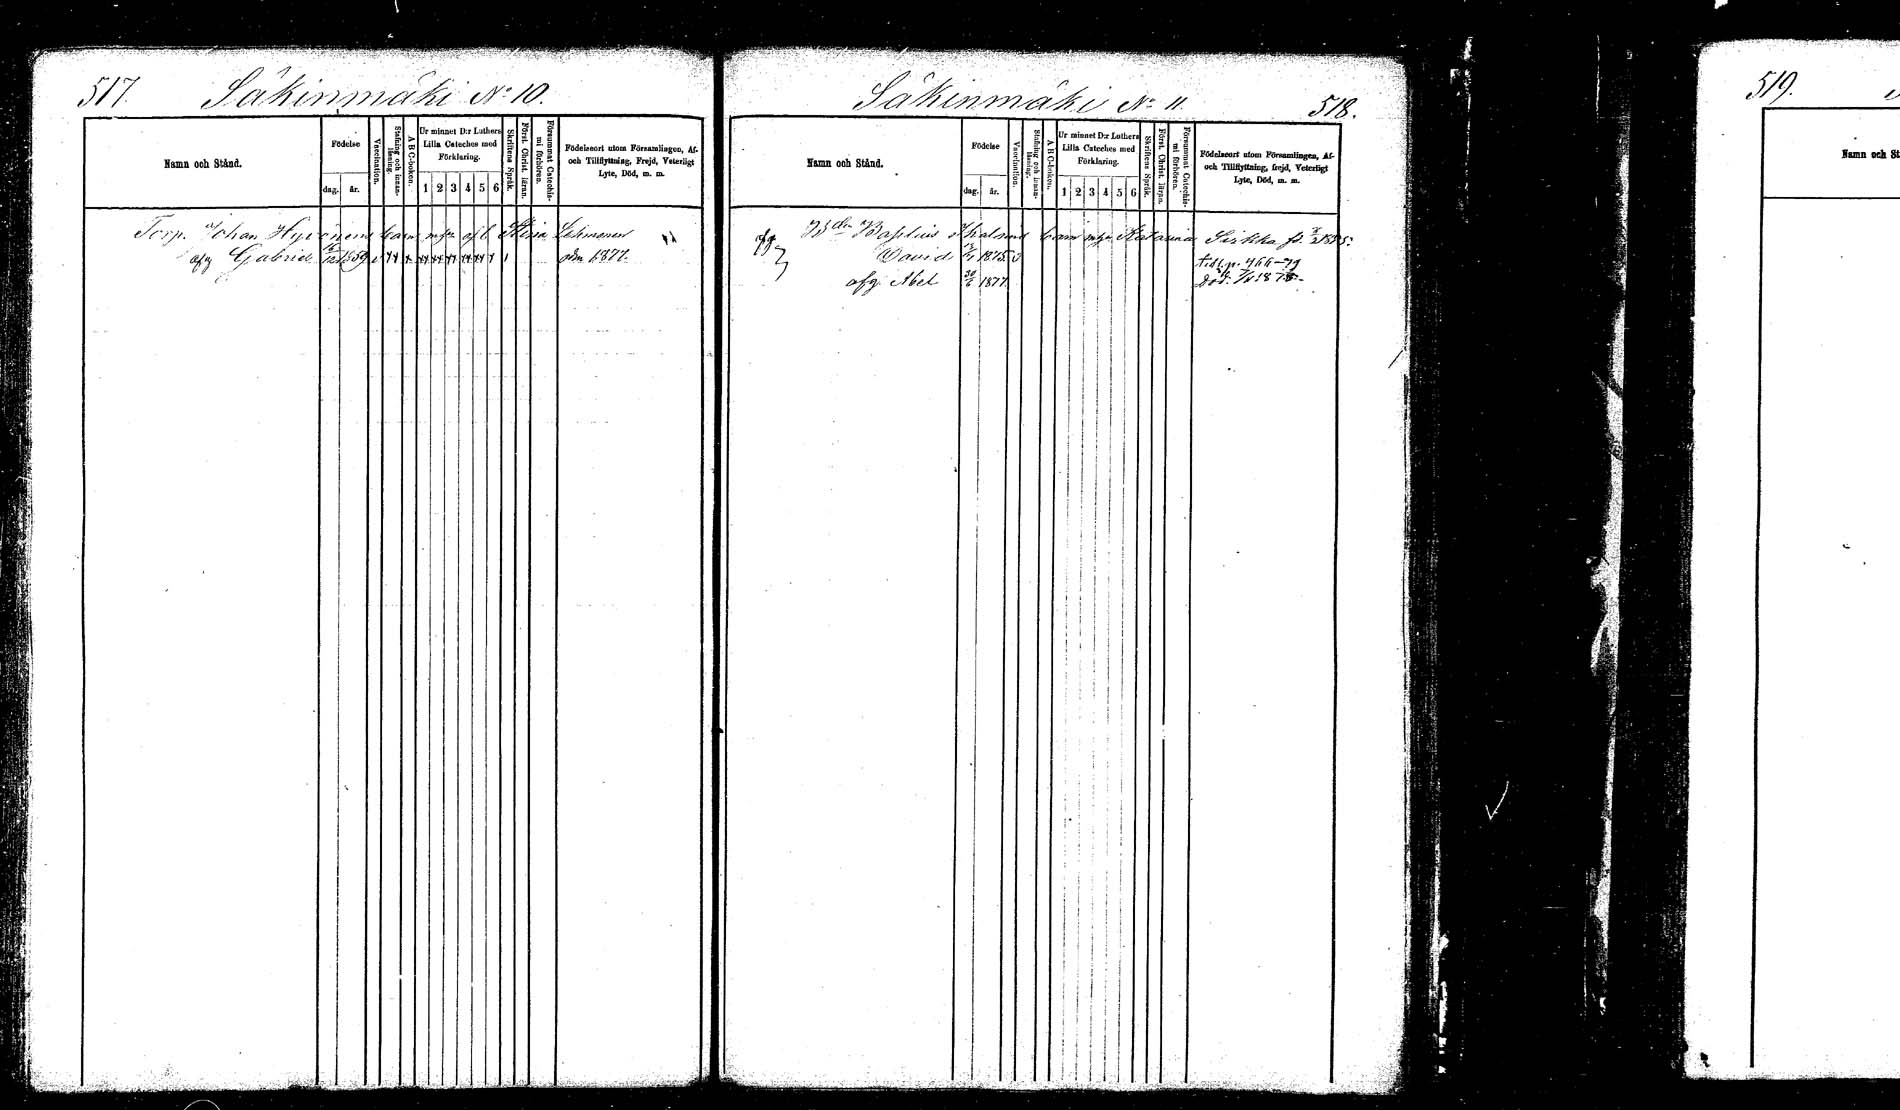 517.
Säkinmäki No 10.
Namn och Stånd.
Födelse
dag. år.
Vaccination.
Stafning och innan-läsning.
A B C-boken.
Ur minnet D:r Luthers
Lilla Cateches med
Förklaring.
1 2 3 4 5 6
Skriftens Språk.
Först. Christ. läran.
Försummat Catechis-mi förhören.
Födelseort utom Församlingen, Af-
och Tillflyttning, Frejd, Veterligt
Lyte, Död, m. m.
Torp. Johan Hyvönens barn m. afl. Stina Lehmonen
Gabriel 59
1877.
Säkinmäki No 11.
518.
Namn och Stånd.
Födelse
dag. år.
Vaccination.
Stafning och innan-läsning.
A B C-boken.
Ur minnet D:r Luthers
Lilla Cateches med
Förklaring.
1 2 3 4 5 6
Skriftens Språk.
Först. Christ. läran.
Försummat Catechis-mi förhören.
Födelseort utom Församlingen, Af-
och Tillflyttning, frejd, Veterligt
Lyte, Död, m. m.
barn m. Katarina Sirkka
David 1875 till p. 466-79
afg Abel 30/6 1877 Död.
519.
Namn och St